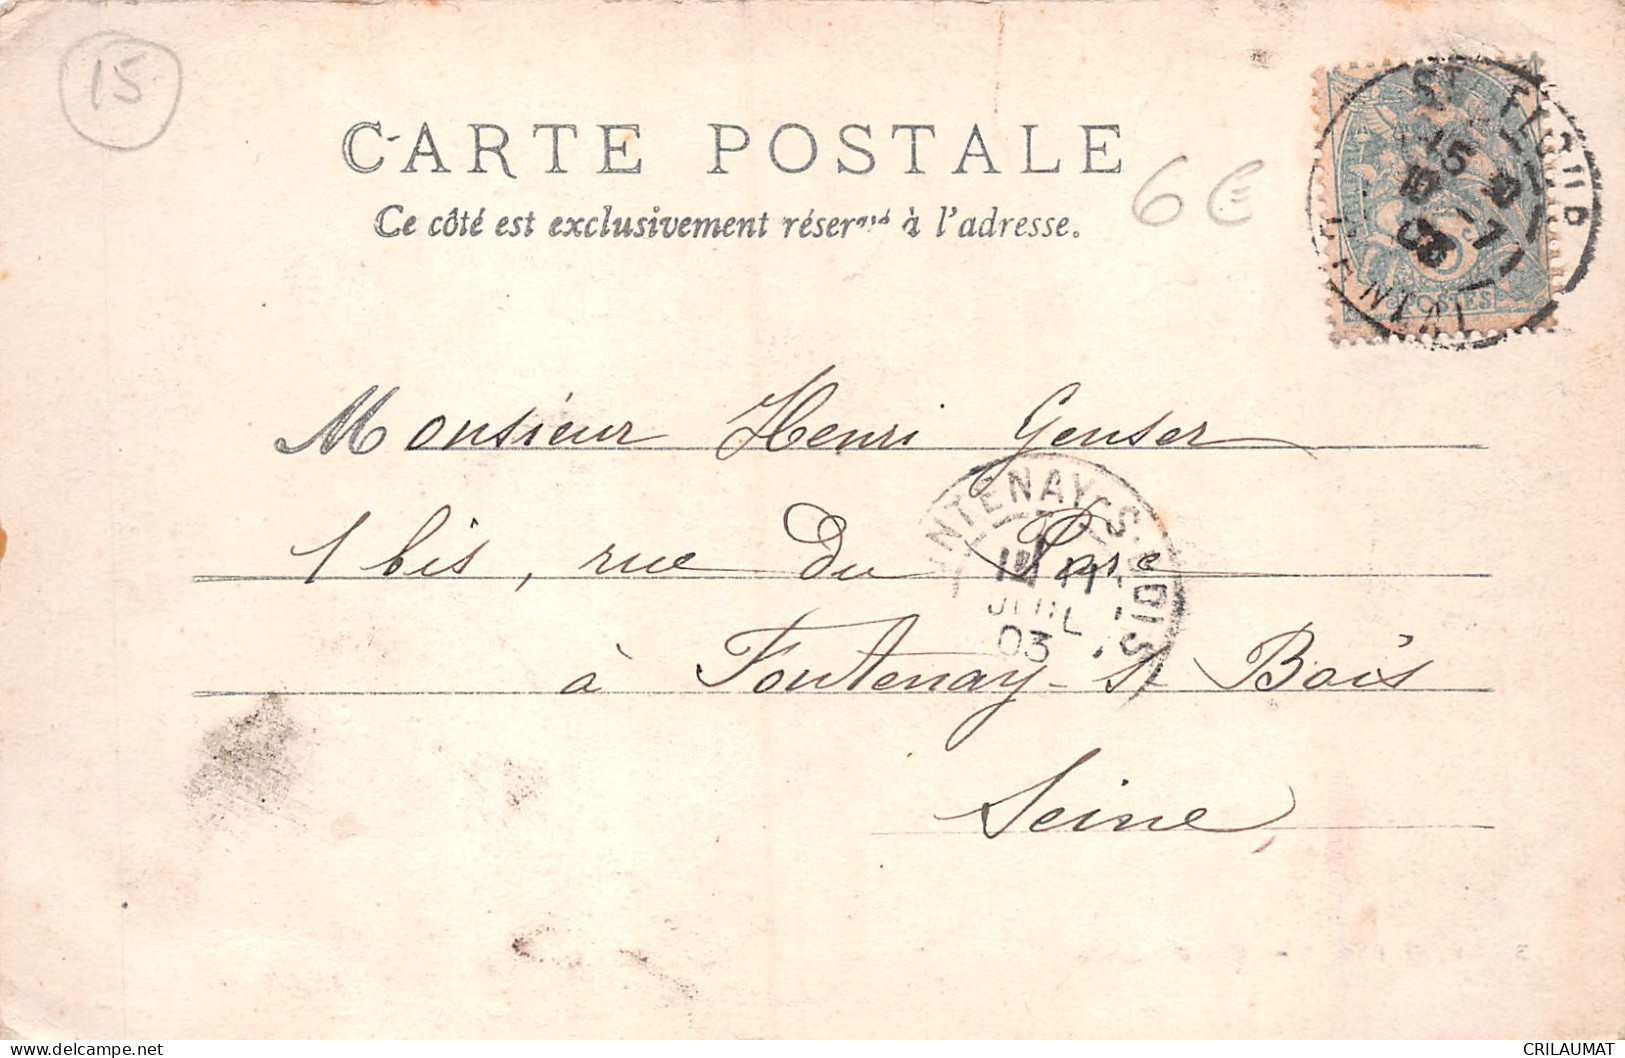 15
CARTE POSTALE
6€
Ce côté est exclusivement réservé à l'adresse.
ST FLOUR
CANTAL
15
10 -7
03
5
POSTES
Monsieur Henri Genser
1 bis, rue du Parc
à Fontenay-s-Bois
Seine,
NTENAY-S-BOIS
11
JUIL
03
delcampe.net
CRILAUMAT